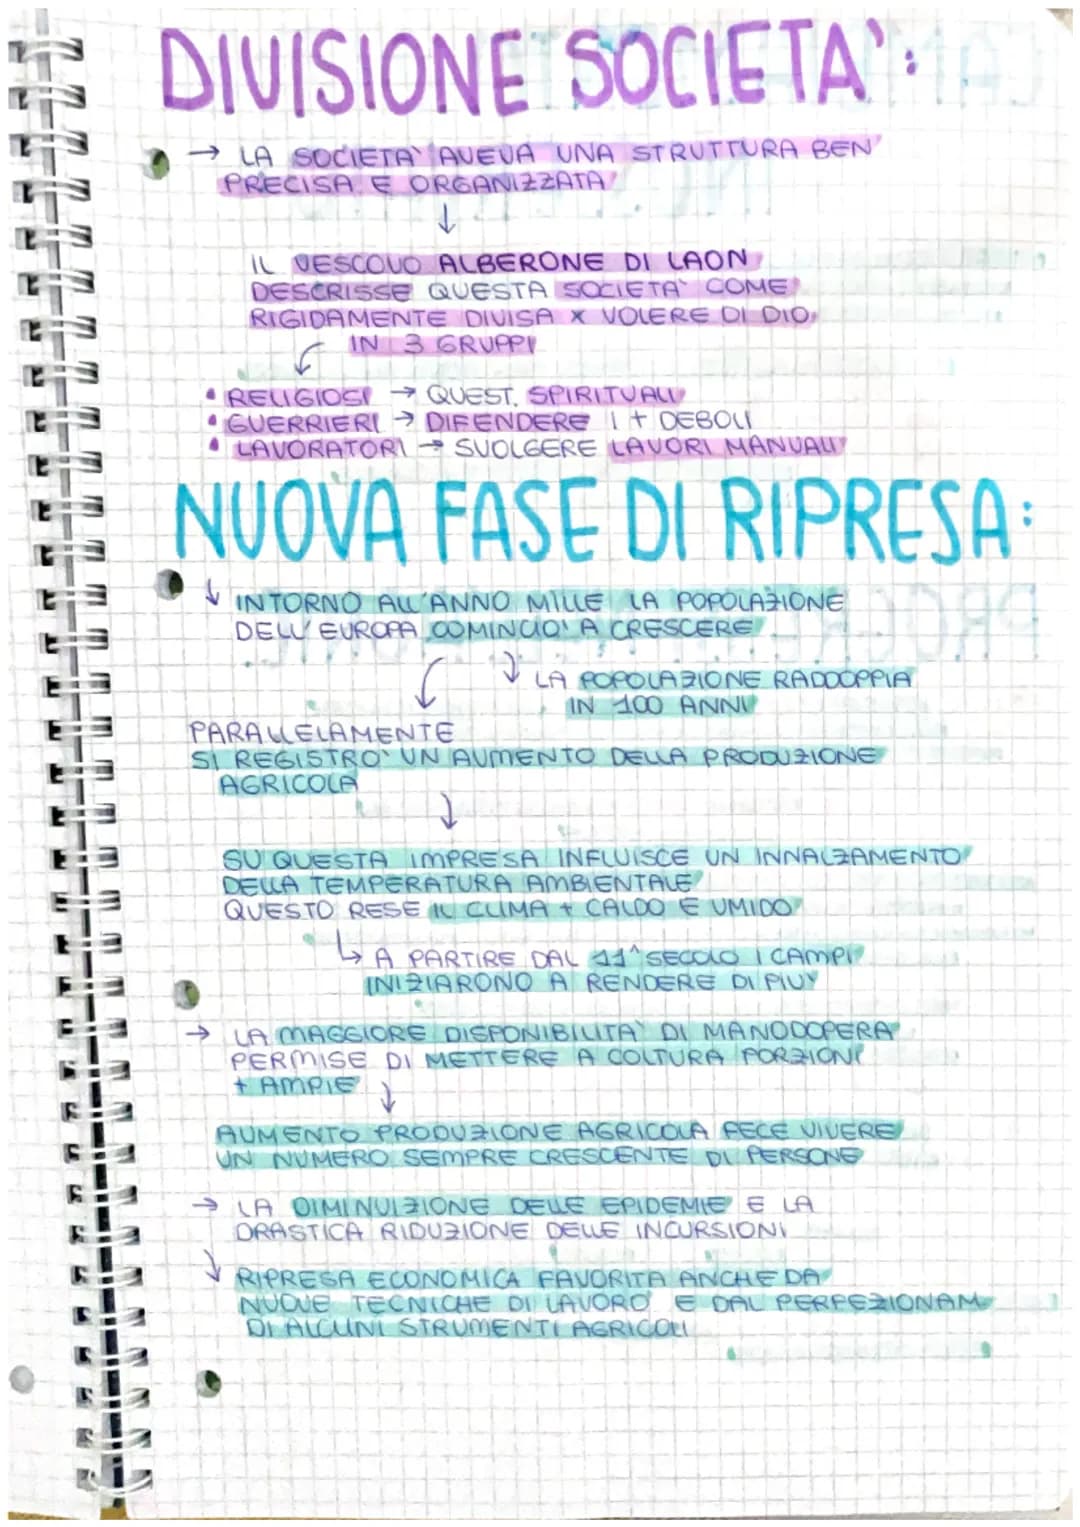 DIVISIONE SOCIETA':
→ LA SOCIETA' AVEVA UNA STRUTTURA BEN
PRECISA E ORGANIZZATA
↓
IL VESCOVO ALBERONE DI LAON
DESCRISSE QUESTA SOCIETA' COME
RIGIDAMENTE DIVISA x VOLERE DI DIO,
IN 3 GRUPPI
• RELIGIOSI → QUEST. SPIRITUALI
• GUERRIERI → DIFENDERE I + DEBOLI
• LAVORATORI → SVOLGERE LAVORI MANUALI
NUOVA FASE DI RIPRESA:
↓ INTORNO ALL'ANNO MILLE LA POPOLAZIONE
DELL'EUROPA COMINCIO' A CRESCERE
↓ LA POPOLAZIONE RADDOPPIA
IN 100 ANNI
PARALLELAMENTE
SI REGISTRO' UN AUMENTO DELLA PRODUZIONE
AGRICOLA
↓
SU QUESTA IMPRESA INFLUISCE UN INNALZAMENTO
DELLA TEMPERATURA AMBIENTALE
QUESTO RESE IL CLIMA + CALDO E UMIDO
↳ A PARTIRE DAL 11^ SECOLO I CAMPI
INIZIARONO A RENDERE DI PIU'
→ LA MAGGIORE DISPONIBILITA' DI MANODOPERA
PERMISE DI METTERE A COLTURA PORZIONI
+ AMPIE
↓
AUMENTO PRODUZIONE AGRICOLA FECE VIVERE
UN NUMERO SEMPRE CRESCENTE DI PERSONE
→ LA DIMINUIZIONE DELLE EPIDEMIE E LA
DRASTICA RIDUZIONE DELLE INCURSIONI
↓ RIPRESA ECONOMICA FAVORITA ANCHE DA
NUOVE TECNICHE DI LAVORO E DAL PERFEZIONAM.
DI ALCUNI STRUMENTI AGRICOLI